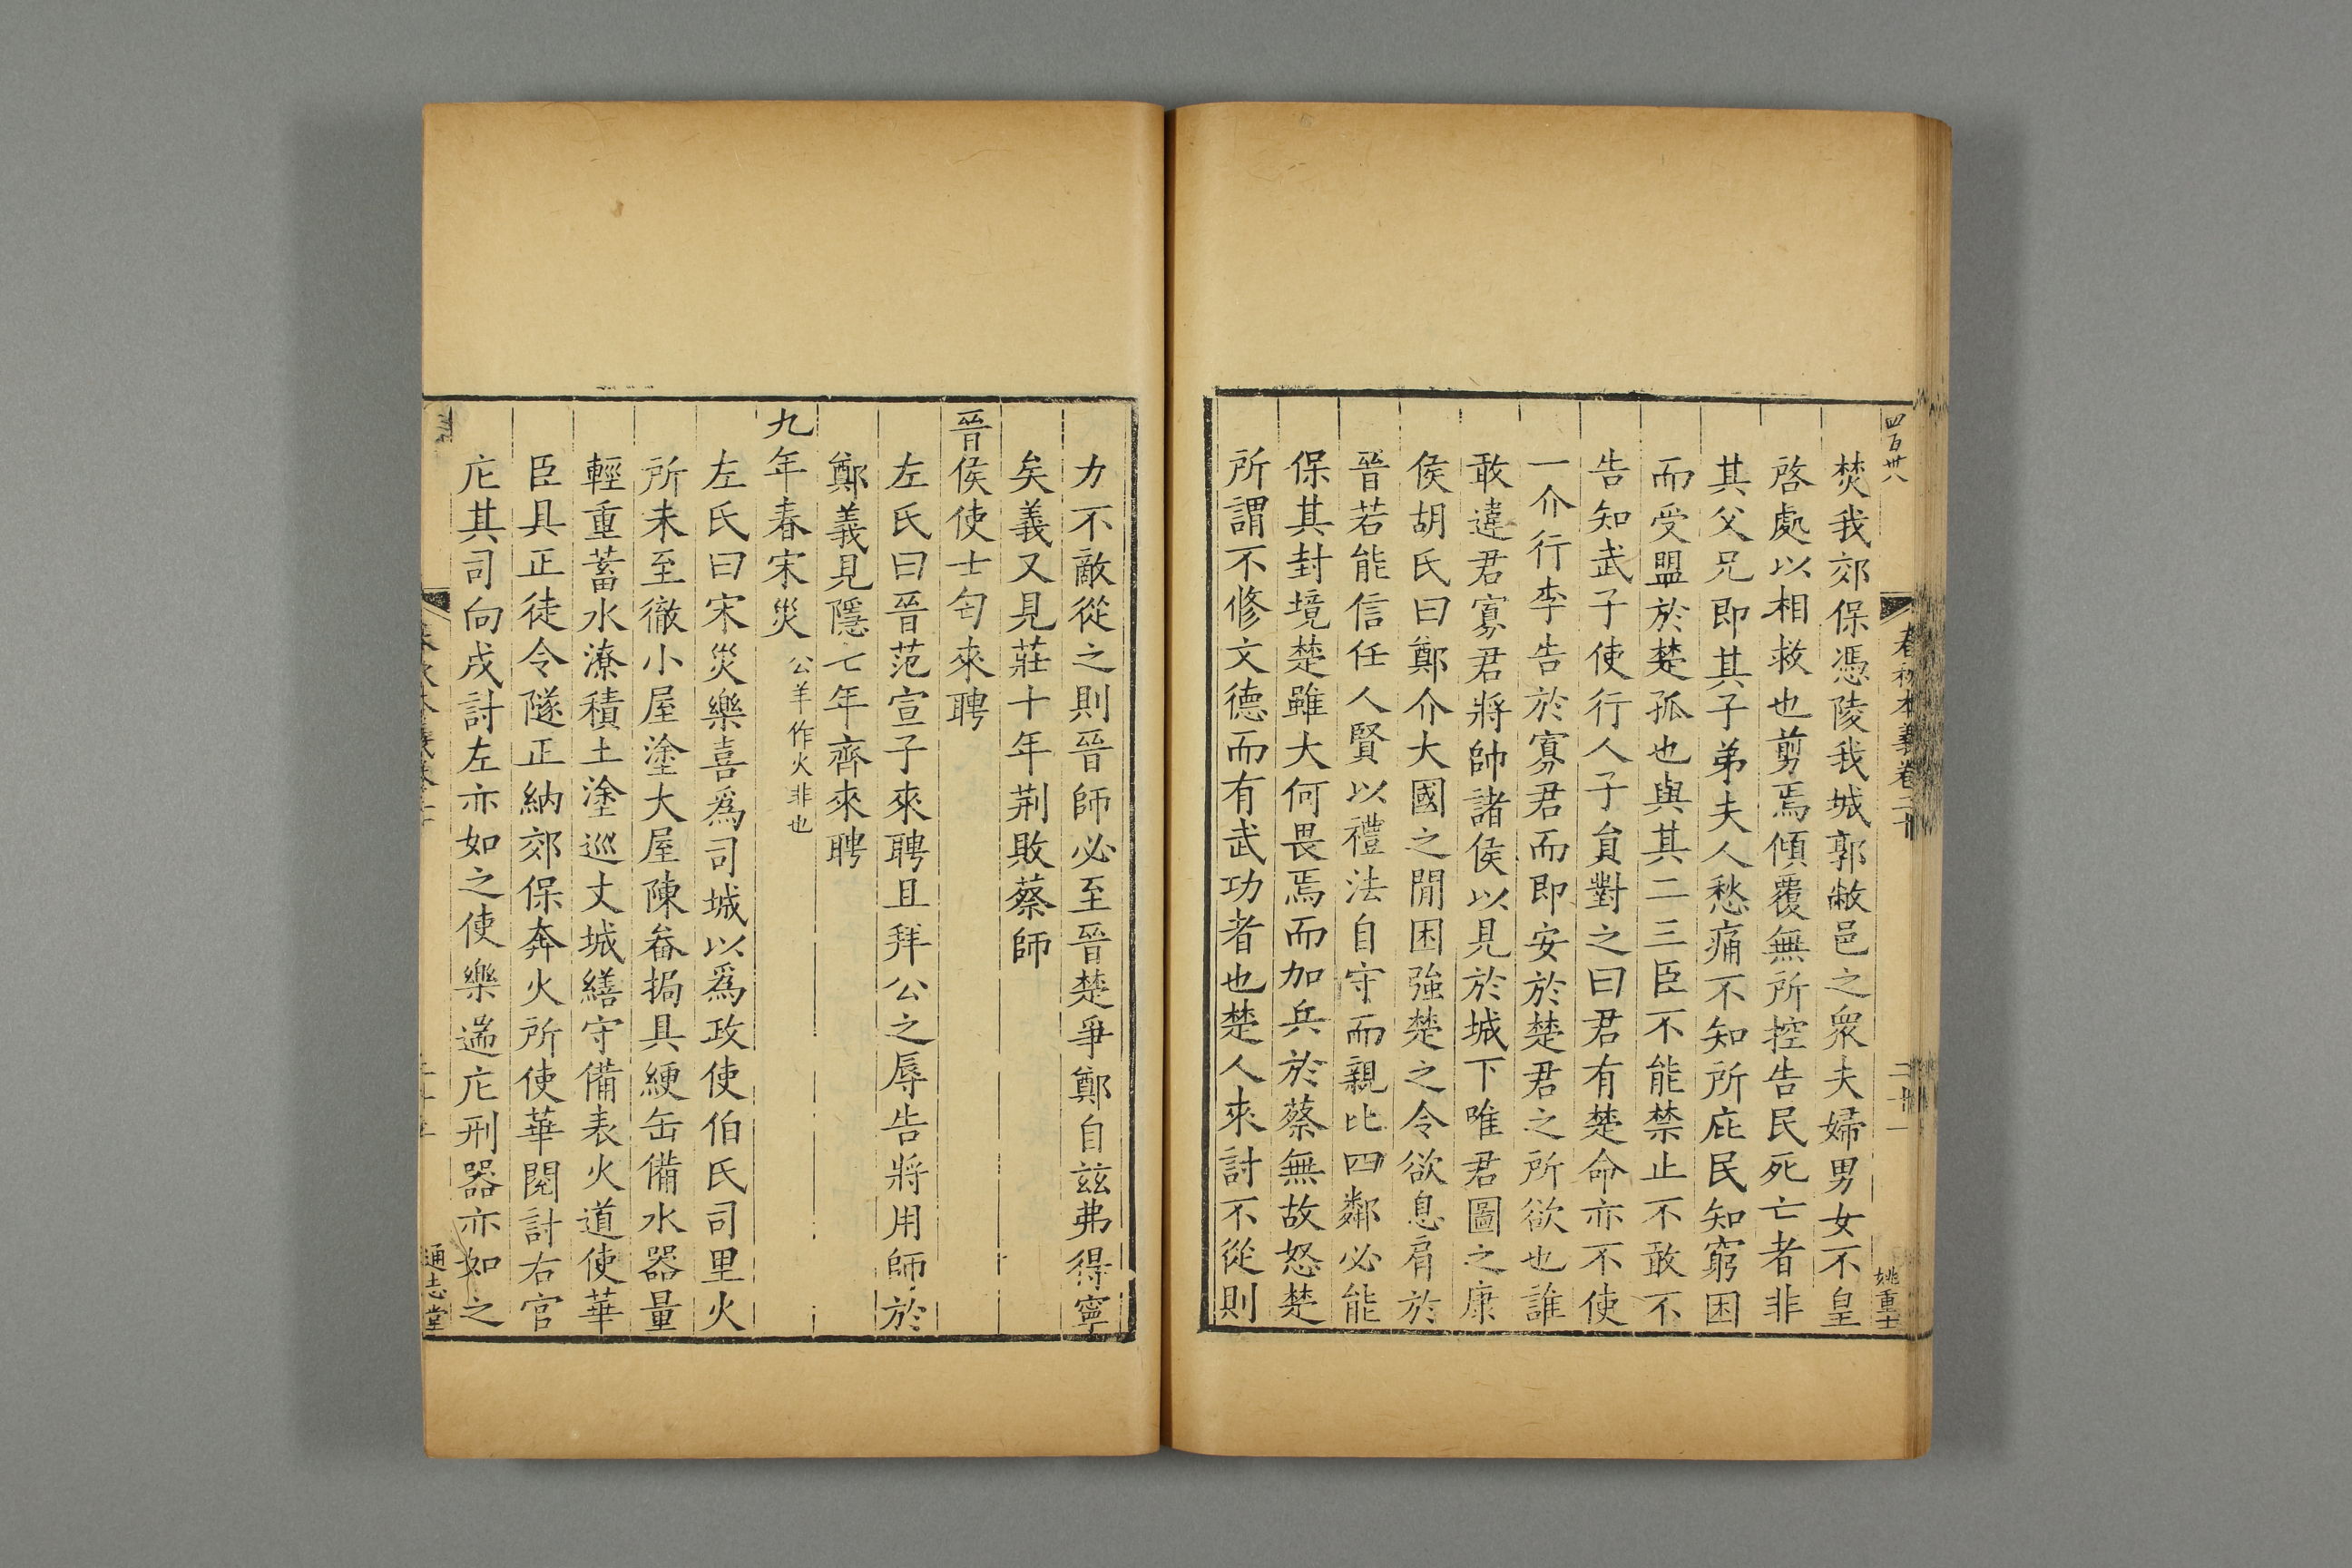 四百卅八
春秋本義卷二十
姚重士
焚我郊保馮陵我城郭敝邑之衆夫婦男女不皇
啓處以相救也剪焉傾覆無所控告民死亡者非
其父兄即其子弟夫人愁痛不知所庇民知窮困
而受盟於楚孤也與其二三臣不能禁止不敢不
告知武子使行人子員對之曰君有楚命亦不使
一介行李告於寡君而即安於楚君之所欲也誰
敢違君寡君將帥諸侯以見於城下唯君圖之康
侯胡氏曰鄭介大國之閒困強楚之令欲息肩於
晉若能信任人賢以禮法自守而親比四鄰必能
保其封境楚雖大何畏焉而加兵於蔡無故怒楚
所謂不修文德而有武功者也楚人來討不從則
力不敵從之則晉師必至晉楚爭鄭自兹弗得寧
矣義又見莊十年荆敗蔡師
晉侯使士匄來聘
左氏曰晉范宣子來聘且拜公之辱告將用師於
鄭義見隱七年齊來聘
九年春宋災公羊作火非也
左氏曰宋災樂喜爲司城以爲政使伯氏司里火
所未至徹小屋塗大屋陳畚挶具綆缶備水器量
輕重蓄水潦積土塗巡丈城繕守備表火道使華
臣具正徒令隧正納郊保奔火所使華閱討右官
庀其司向戌討左亦如之使樂遄庀刑器亦如之
通志堂